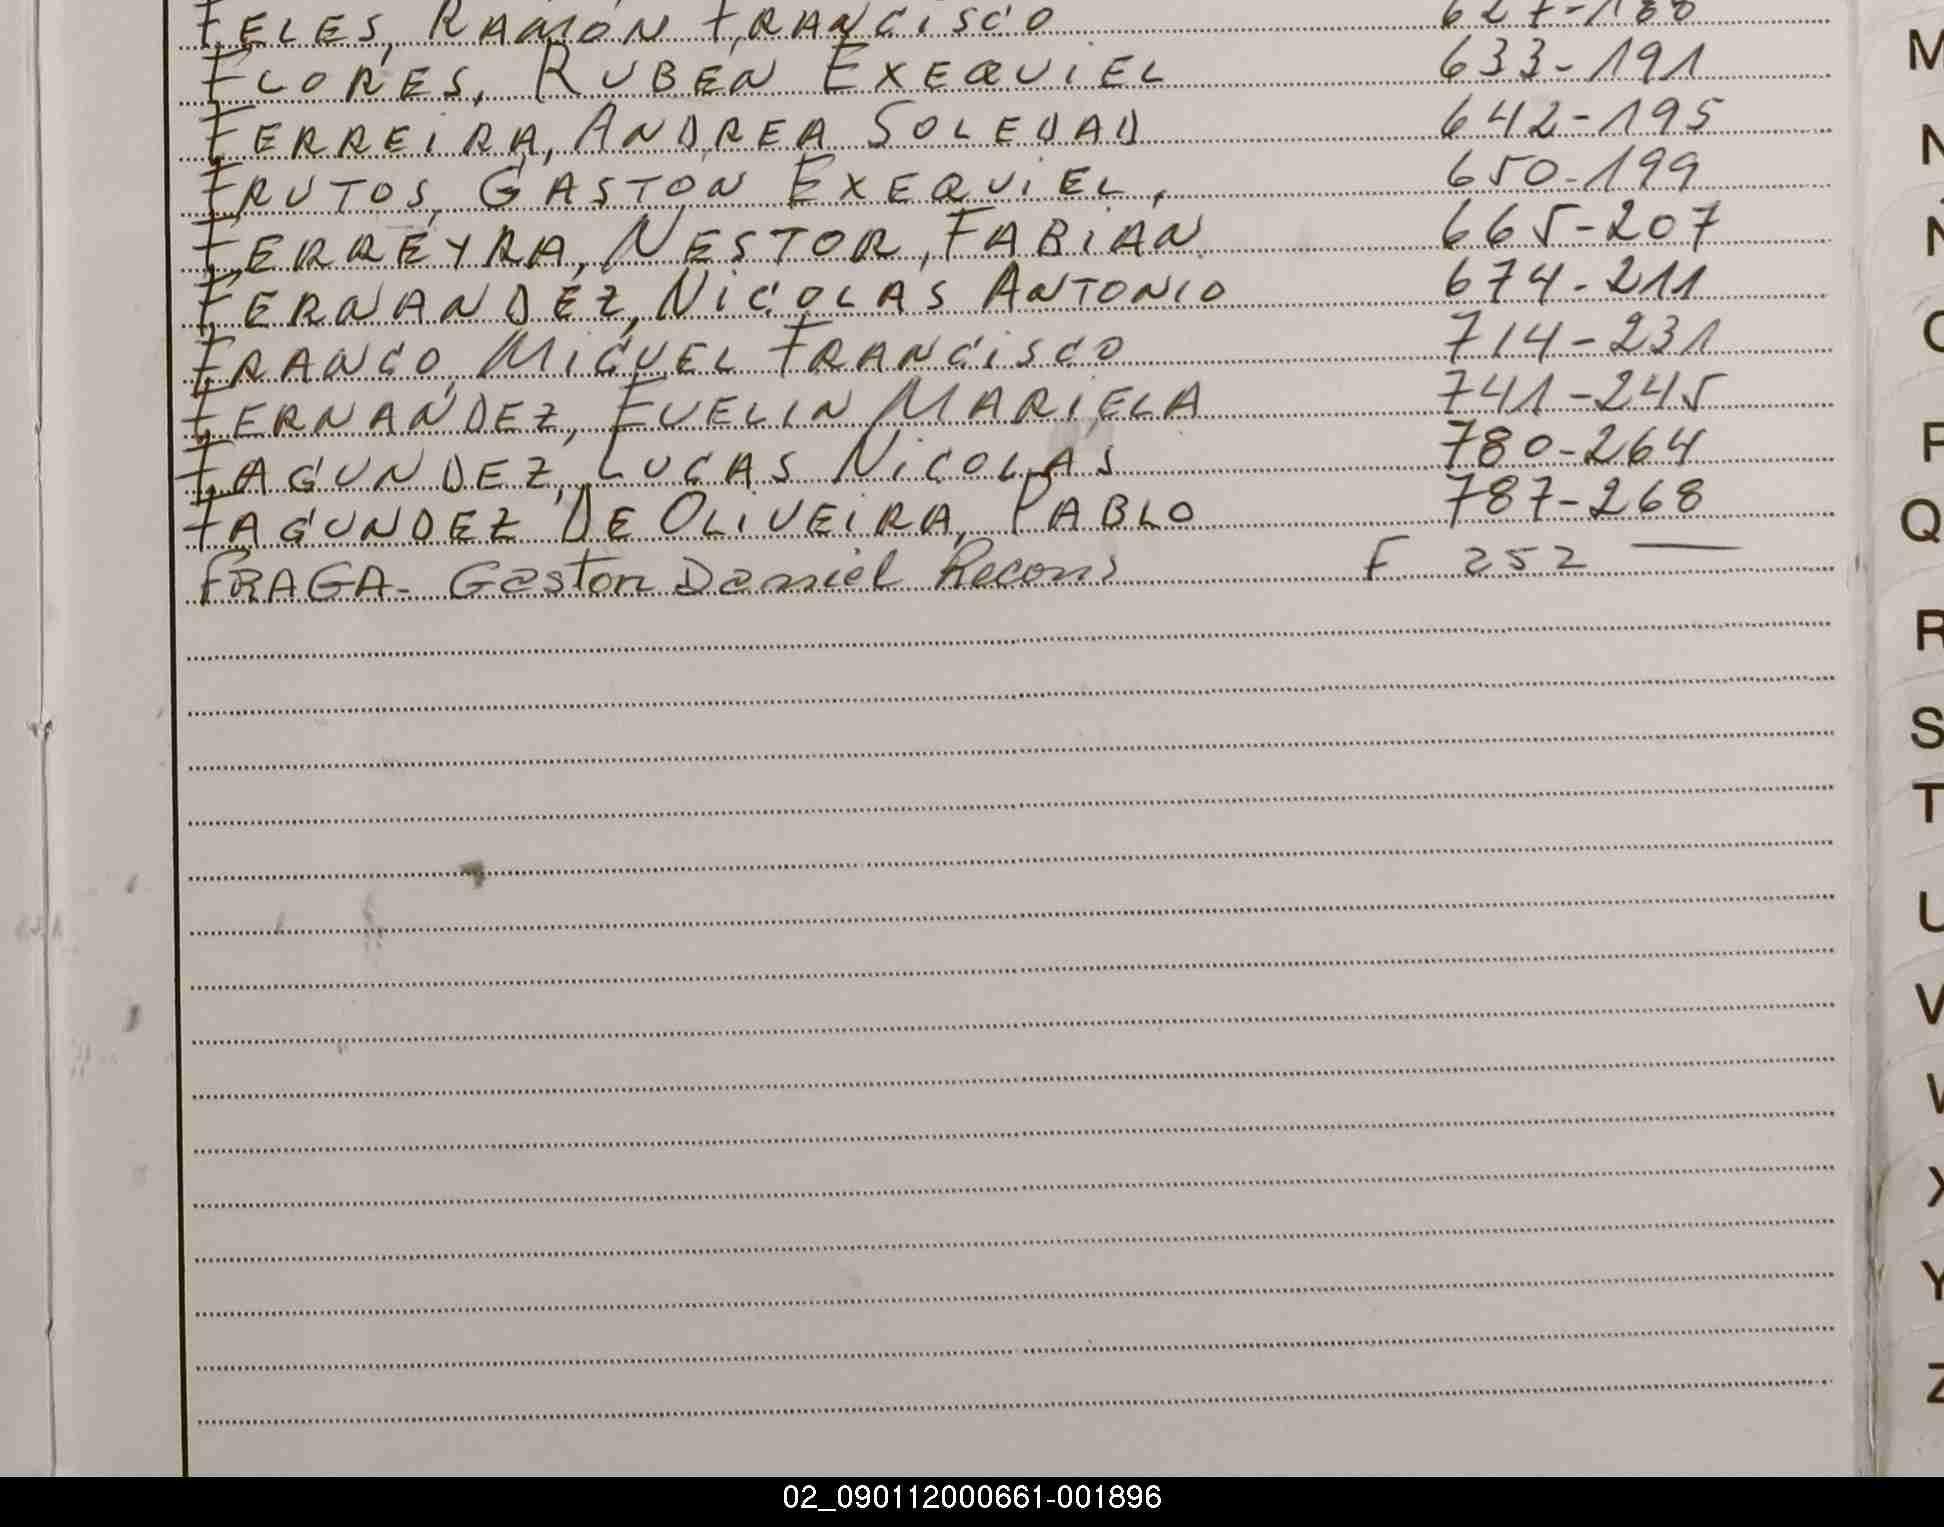 FELES, RAMÓN FRANCISCO 627-188
FLORES, RUBEN EXEQUIEL 633-191
FERREIRA, ANDREA SOLEDAD 642-195
FRUTOS, GASTON EXEQUIEL, 650-199
FERREYRA, NESTOR, FABIÁN 665-207
FERNANDEZ, NICOLAS ANTONIO 674-211
FRANCO, MIGUEL FRANCISCO 714-231
FERNANDEZ, EVELIN MARIELA 741-245
FAGUNDEZ, LUCAS NICOLAS 780-264
FAGUNDEZ DE OLIVEIRA, PABLO 787-268
FRAGA- Gaston Daniel F 252 —
M
N
Ñ
O
P
Q
R
S
T
U
V
W
X
Y
Z
02_090112000661-001896